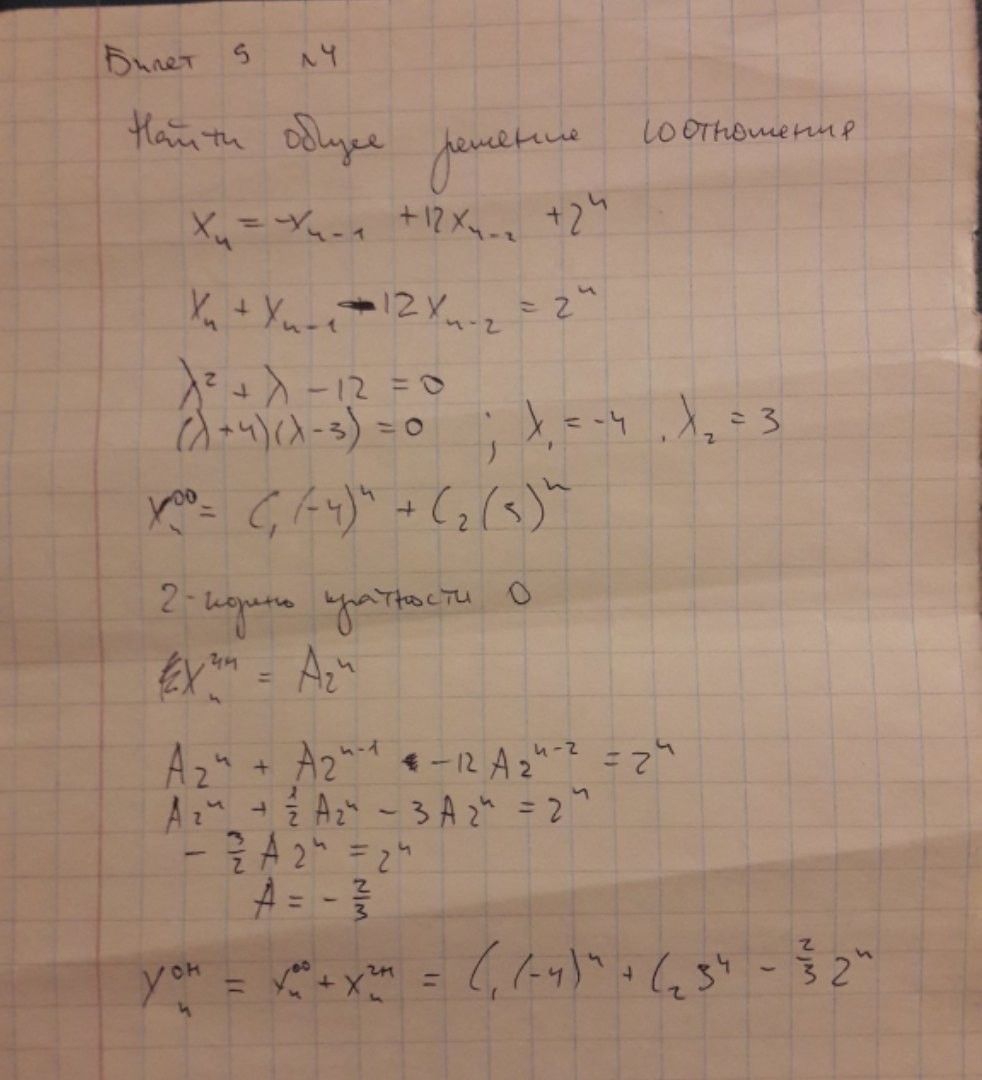 Билет 5 №4
Найти общее решение соотношения
xₙ = -xₙ₋₁ + 12xₙ₋₂ + 2ⁿ
xₙ + xₙ₋₁ - 12xₙ₋₂ = 2ⁿ
λ² + λ - 12 = 0
(λ+4)(λ-3) = 0 ; λ₁ = -4, λ₂ = 3
xₙᵒᵒ = C₁(-4)ⁿ + C₂(3)ⁿ
2-корень кратности 0
xₙᶜʰᴴ = A2ⁿ
A2ⁿ + A2ⁿ⁻¹ - 12A2ⁿ⁻² = 2ⁿ
A2ⁿ + ½A2ⁿ - 3A2ⁿ = 2ⁿ
- 3/2 A 2ⁿ = 2ⁿ
A = - 2/3
yₙᵒᴴ = xₙᵒᵒ + xₙᶜʰᴴ = C₁(-4)ⁿ + C₂3ⁿ - 2/3 2ⁿ